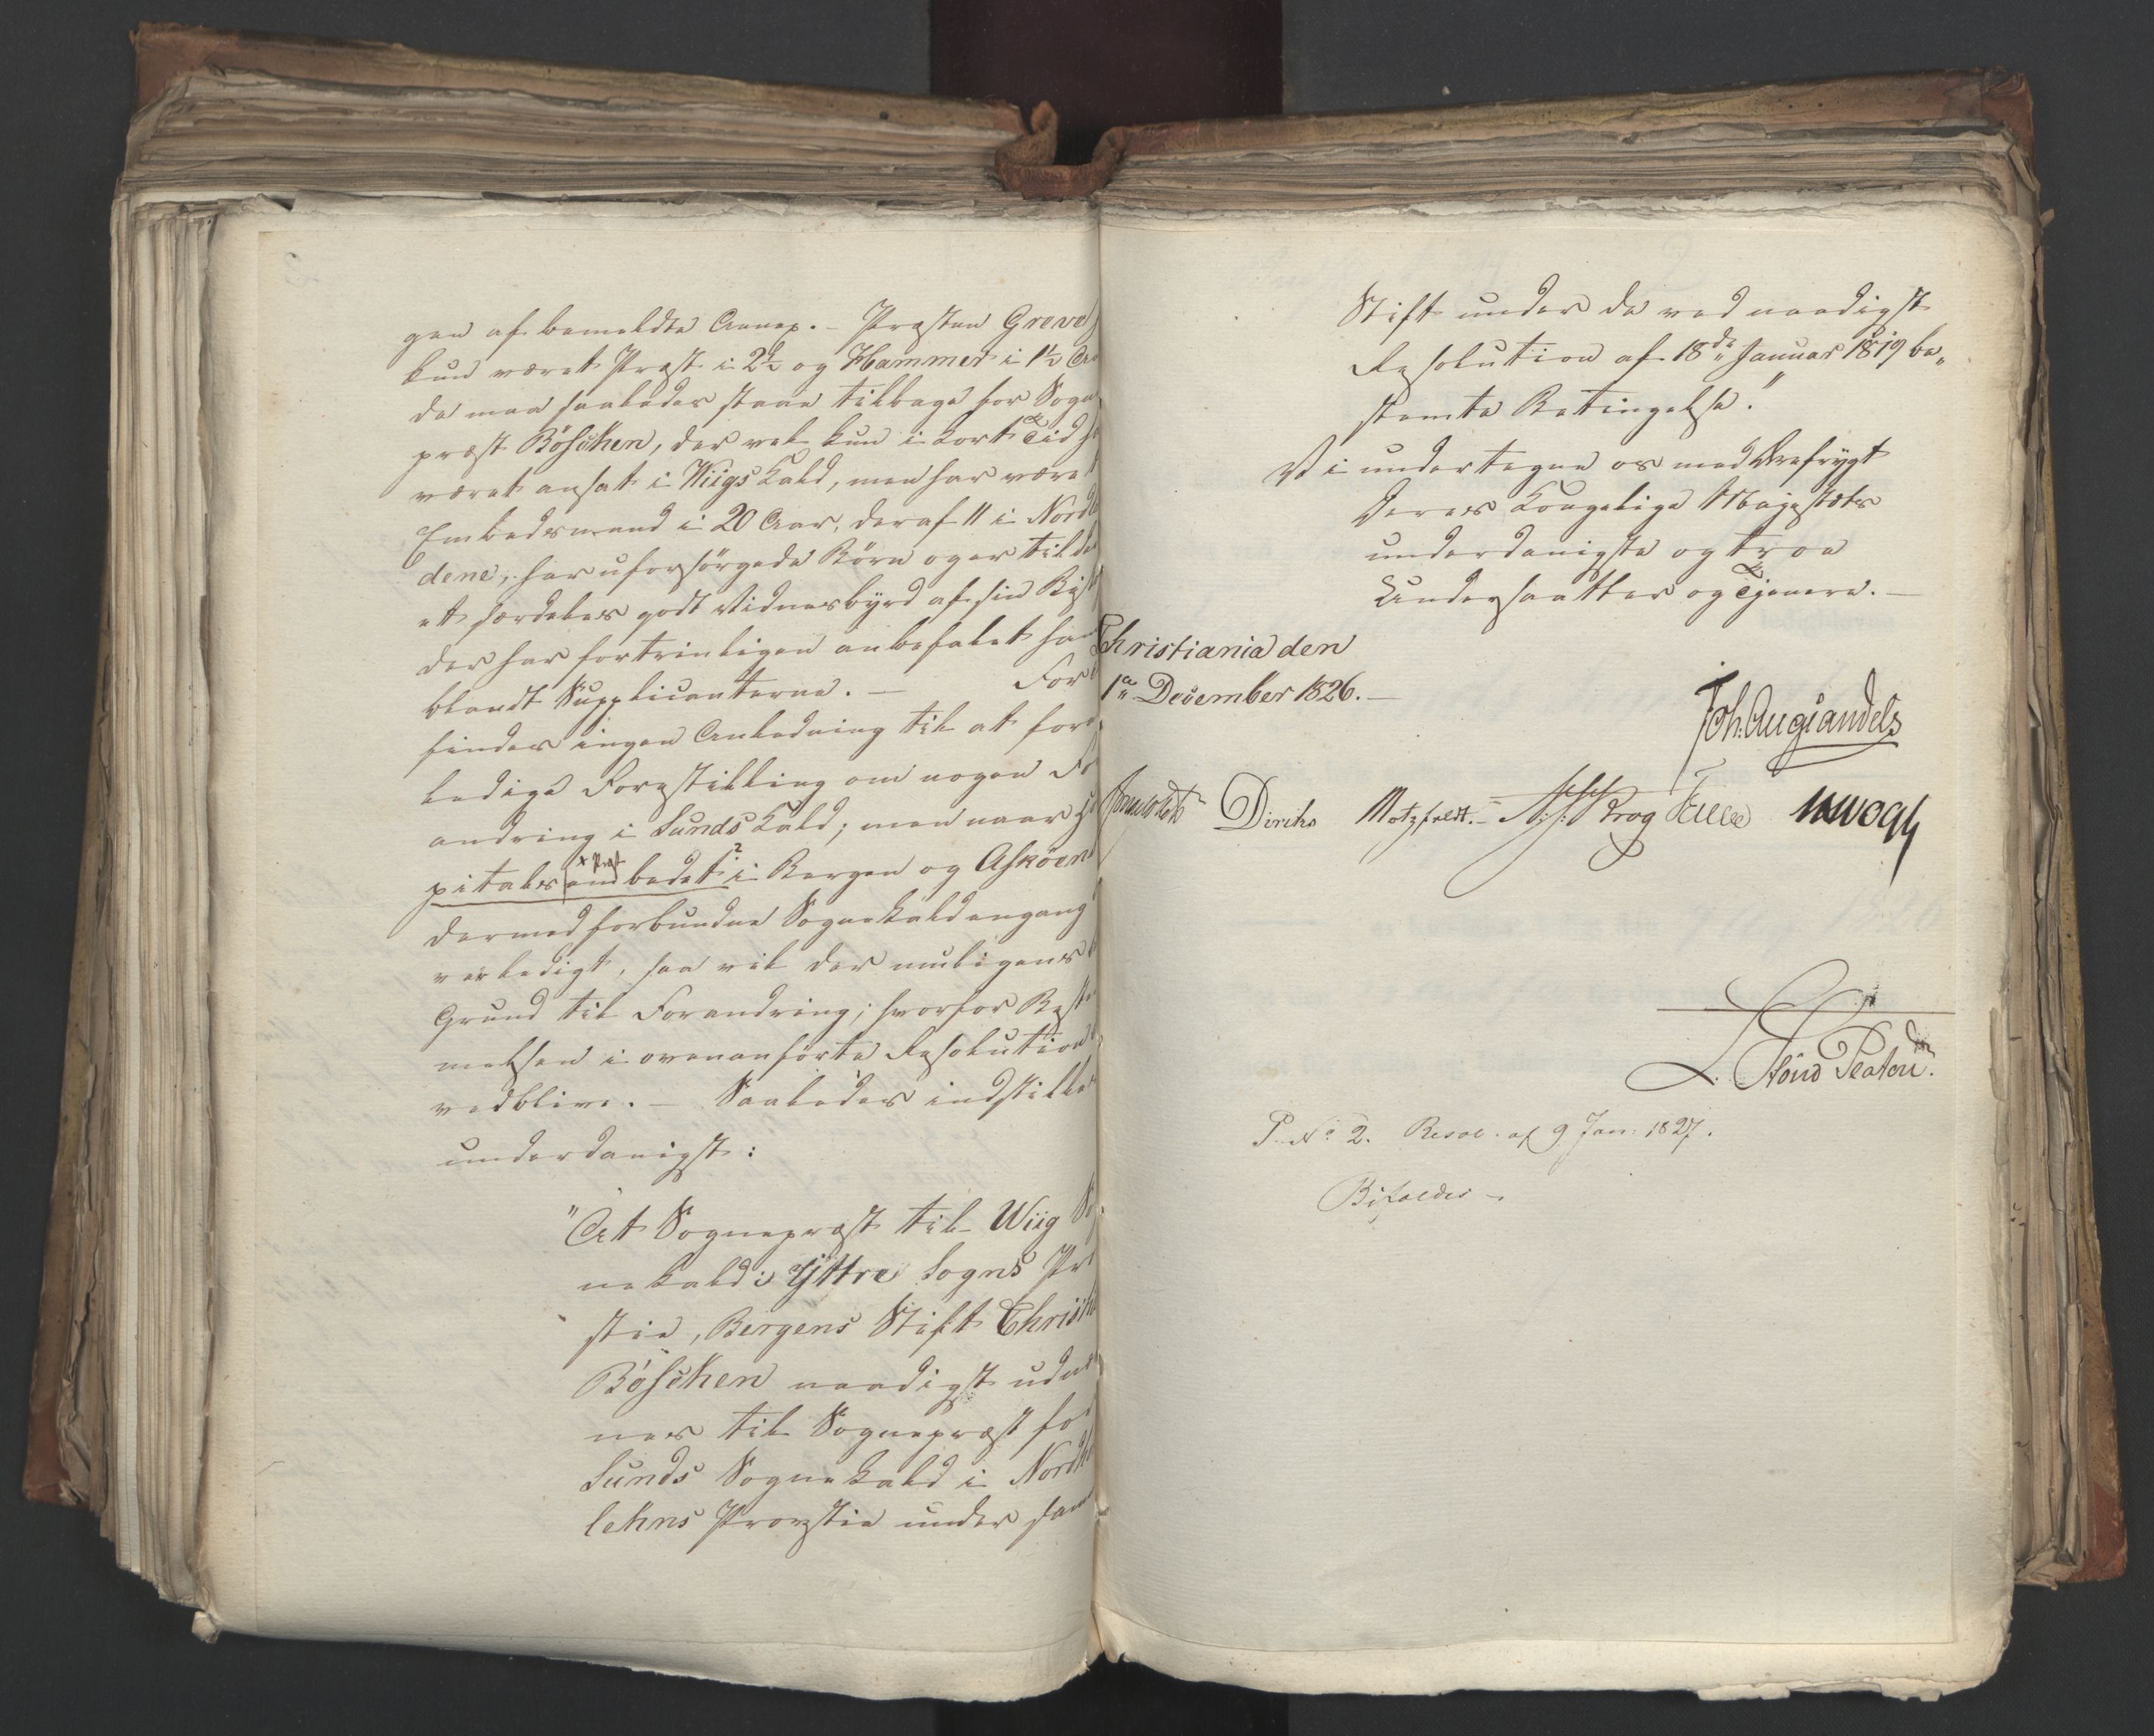 gen af bemeldte Annex. – Præsten Greve
kun været Præst i 2½ og Hammer i 1½ Aa
de maa saaledes staae tilbage for Sogne
præst Böschen, der vel kun i kort Tid h
været ansat i Wiigs Kald, men har været
Embedsmand i 20 Aar, deraf 11 i Nordla
dene, har uforsörgede Börn og er tildee
et særdeles godt Vidnesbyrd af sin Bisk
der har fortrinligen anbefalet ham
blandt Supplicanterne. – For
finder ingen Anledning til at for
ledige Forestilling om nogen Fo
andring i Sunds Kald; men naar
pitals x Præst embedet 2 i Bergen og Asköens
dermed forbundne Sognekald engang
er ledigt, saa vil der muligens
Grund til Forandring; hvorfor Beste
melsen i ovenanförte Resolution
vedblive. – Saaledes indstilles
underdanigst:
"At Sognepræst til Wiig So
nekald i Yttre Sogns Pr
stie, Bergens Stift Christ
Böschen naadigst udnæ
nes til Sognepræst for
Sunds Sognekald i Nordh
lehns Provstie under sam
Stift under de ved naadigst
Resolution af 18de Januar 1819 be„
stemte Betingelse."
Vi undertegne os med Ærefrygt
Deres Kongelige Majestæts
underdanigste og troe
Undersaatter og Tjenere. –
Christiania den
1ste December 1826. –
Joh. Aug. Sandels
Sommerhielm Diriks Motzfeldt. – Krog Treschow
L. Stoud Platou.
P. No 2. Resol. af 9 Jan: 1827.
Bifaldes –